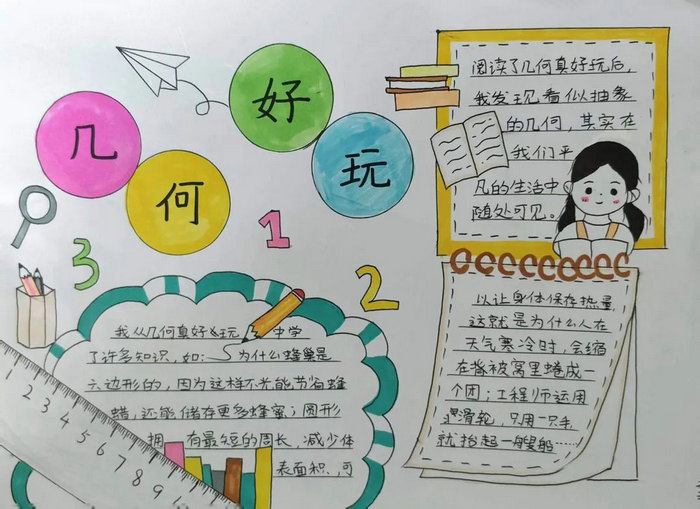 几何好玩
3
1
2
阅读了几何真好玩后,
我发现看似抽象
的几何,其实在
我们平
凡的生活中
随处可见。
我从几何真好玩 中学
了许多知识,如: 为什么蜂巢是
六边形的,因为这样不光能节省蜂
蜡,还能储存更多蜂蜜;圆形
拥 有最短的周长,减少体
表面积、可
以让身体保存热量,
这就是为什么人在
天气寒冷时,会缩
在 被窝里蜷成一
个团;工程师运用
滑轮,只用一只手
就抬起一艘船……
1 2 3 4 5 6 7 8 9 10 11